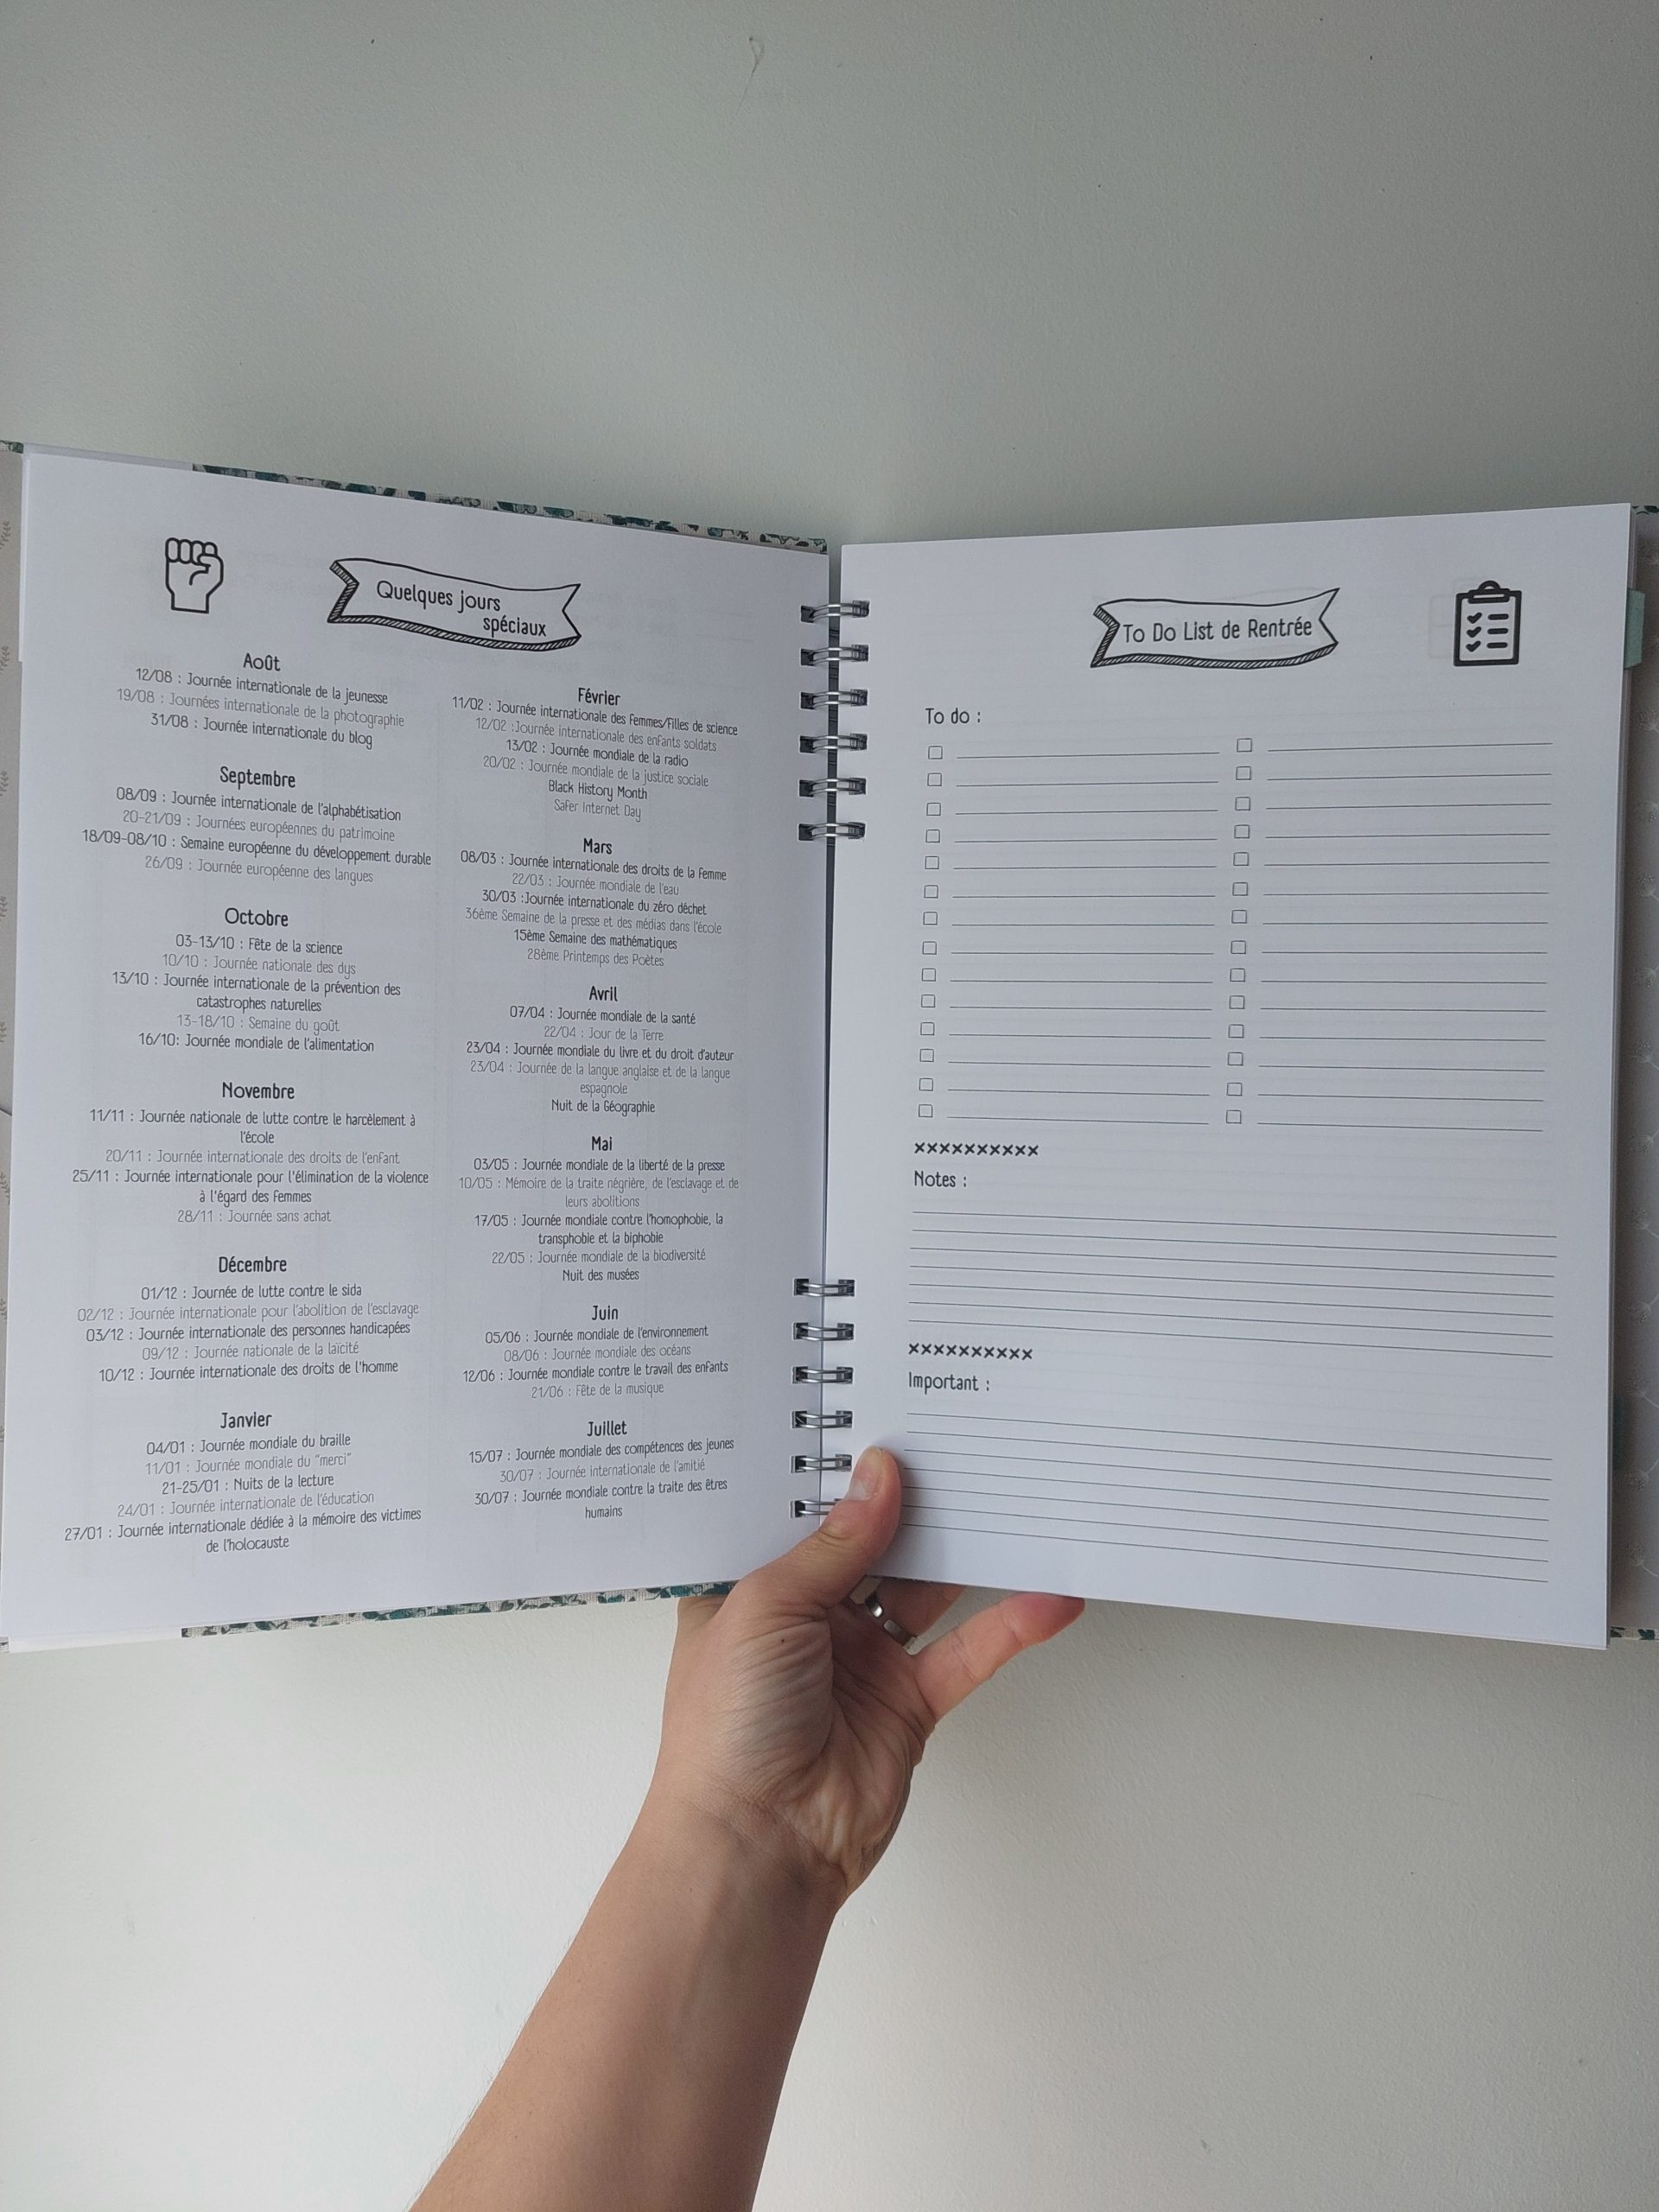 Quelques jours
spéciaux
Août
12/08 : Journée internationale de la jeunesse
19/08 : Journées internationale de la photographie
31/08 : Journée internationale du blog
Septembre
08/09 : Journée internationale de l'alphabétisation
20-21/09 : Journées européennes du patrimoine
18/09-08/10 : Semaine européenne du développement durable
26/09 : Journée européenne des langues
Octobre
03-13/10 : Fête de la science
10/10 : Journée nationale des dys
13/10 : Journée internationale de la prévention des
catastrophes naturelles
13-18/10 : Semaine du goût
16/10: Journée mondiale de l'alimentation
Novembre
11/11 : Journée nationale de lutte contre le harcèlement à
l'école
20/11 : Journée internationale des droits de l'enfant
25/11 : Journée internationale pour l'élimination de la violence
à l'égard des femmes
28/11 : Journée sans achat
Décembre
01/12 : Journée de lutte contre le sida
02/12 : Journée internationale pour l'abolition de l'esclavage
03/12 : Journée internationale des personnes handicapées
09/12 : Journée nationale de la laïcité
10/12 : Journée internationale des droits de l'homme
Janvier
04/01 : Journée mondiale du braille
11/01 : Journée mondiale du "merci"
21-25/01 : Nuits de la lecture
24/01 : Journée internationale de l'éducation
27/01 : Journée internationale dédiée à la mémoire des victimes
de l'holocauste
Février
11/02 : Journée internationale des femmes/filles de science
12/02 :Journée internationale des enfants soldats
13/02 : Journée mondiale de la radio
20/02 : Journée mondiale de la justice sociale
Black History Month
Safer Internet Day
Mars
08/03 : Journée internationale des droits de la femme
22/03 : Journée mondiale de l'eau
30/03 :Journée internationale du zéro déchet
36ème Semaine de la presse et des médias dans l'école
15ème Semaine des mathématiques
28ème Printemps des Poètes
Avril
07/04 : Journée mondiale de la santé
22/04 : Jour de la Terre
23/04 : Journée mondiale du livre et du droit d'auteur
23/04 : Journée de la langue anglaise et de la langue
espagnole
Nuit de la Géographie
Mai
03/05 : Journée mondiale de la liberté de la presse
10/05 : Mémoire de la traite négrière, de l'esclavage et de
leurs abolitions
17/05 : Journée mondiale contre l'homophobie, la
transphobie et la biphobie
22/05 : Journée mondiale de la biodiversité
Nuit des musées
Juin
05/06 : Journée mondiale de l'environnement
08/06 : Journée mondiale des océans
12/06 : Journée mondiale contre le travail des enfants
21/06 : Fête de la musique
Juillet
15/07 : Journée mondiale des compétences des jeunes
30/07 : Journée internationale de l'amitié
30/07 : Journée mondiale contre la traite des êtres
humains
To Do List de Rentrée
To do :
xxxxxxxxxx
Notes :
xxxxxxxxxx
Important :